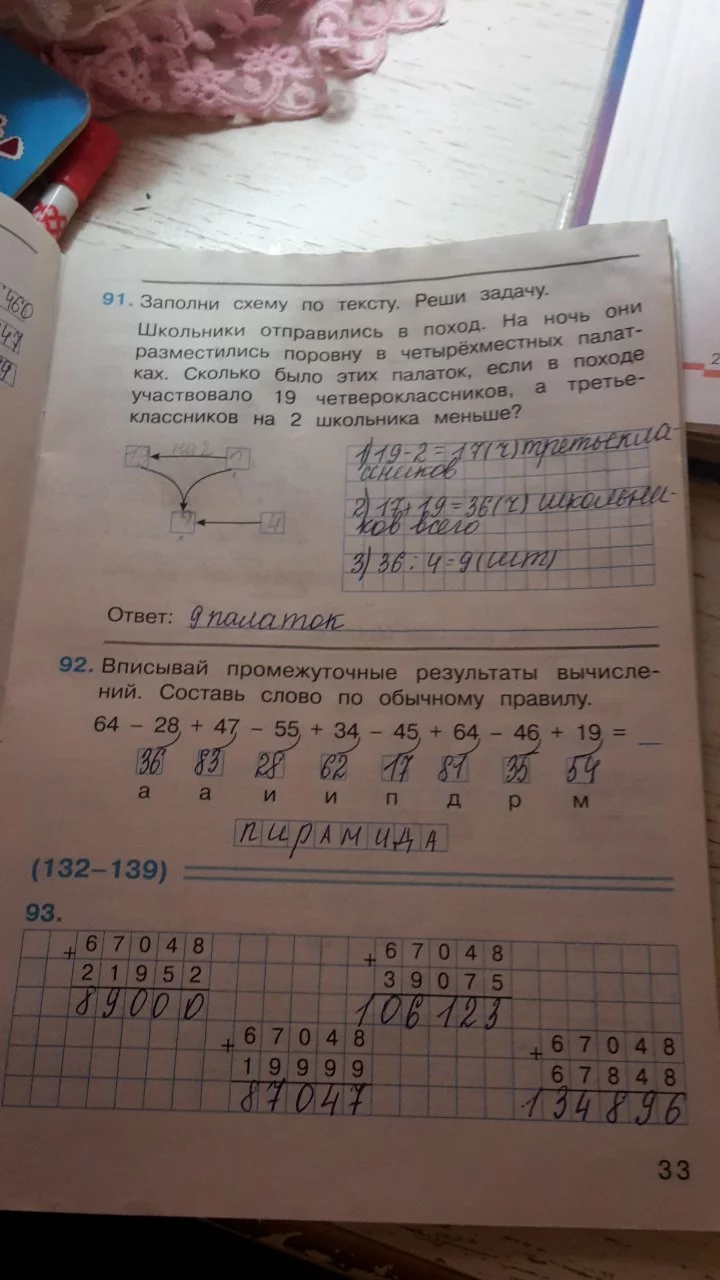 460
47
9
2
91. Заполни схему по тексту. Реши задачу.
Школьники отправились в поход. На ночь они
разместились поровну в четырёхместных палат-
ках. Сколько было этих палаток, если в походе
участвовало 19 четвероклассников, а третье-
классников на 2 школьника меньше?
19 на 2 ?
? 4
1) 19-2=17(ч) третьекла-
сников
2) 17+19=36(ч) школьни-
ков всего
3) 36:4=9(шт)
Ответ: 9 палаток
92. Вписывай промежуточные результаты вычисле-
ний. Составь слово по обычному правилу.
64 – 28 + 47 – 55 + 34 – 45 + 64 – 46 + 19 =
36 83 28 62 17 81 35 54
а а и и п д р м
ПИРАМИДА
(132–139)
93.
+ 67048
21952
89000
+ 67048
39075
106123
+ 67048
19999
87047
+ 67048
67848
134896
33